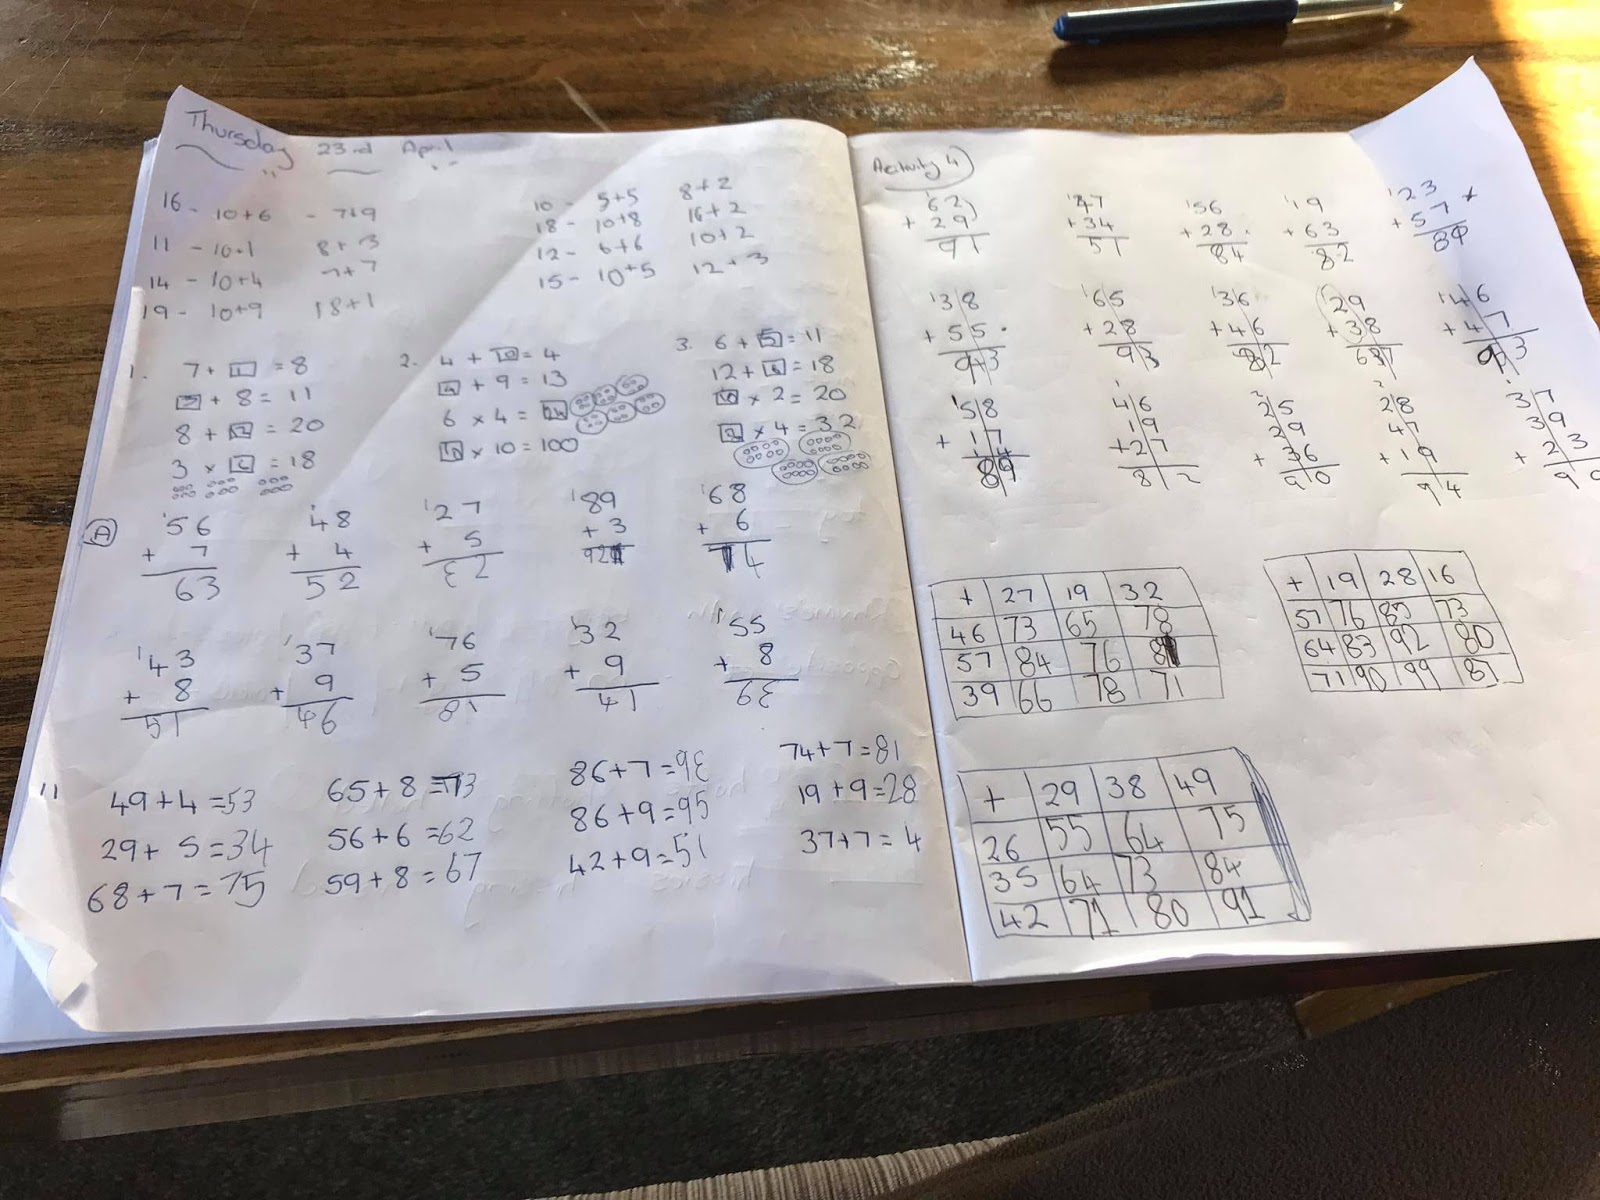 Thursday 23rd April
16 - 10+6 - 7+9
11 - 10+1 8+3
14 - 10+4 7+7
19 - 10+9 18+1
10 - 5+5 8+2
18 - 10+8 16+2
12 - 6+6 10+2
15 - 10+5 12+3
1. 7 + 1 = 8
3 + 8 = 11
8 + 12 = 20
3 × 6 = 18
2. 4 + 0 = 4
4 + 9 = 13
6 × 4 = 24
10 × 10 = 100
3. 6 + 5 = 11
12 + 6 = 18
10 × 2 = 20
× 4 = 32
A
56 48 27 89 68
+ 7 + 4 + 5 + 3 + 6
63 52 32 92 74
43 37 76 32 55
+ 8 + 9 + 5 + 9 + 8
51 46 81 41 63
11 49+4=53 65+8=73 86+7=93 74+7=81
29+5=34 56+6=62 86+9=95 19+9=28
68+7=75 59+8=67 42+9=51 37+7=4
Activity 4
62 47 56 19 23
+29 +34 +28 +63 +57
91 51 84 82 80
38 65 36 29 46
+55 +28 +46 +38 +47
93 93 82 67 93
58 46 25 28 37
17 19 29 47 39
+ 14 +27 + 36 + 19 + 23
89 82 90 94 99
+ 27 19 32
46 73 65 78
57 84 76 89
39 66 78 71
+ 19 28 16
57 76 85 73
64 83 92 80
71 90 99 87
+ 29 38 49
26 55 64 75
35 64 73 84
42 71 80 91